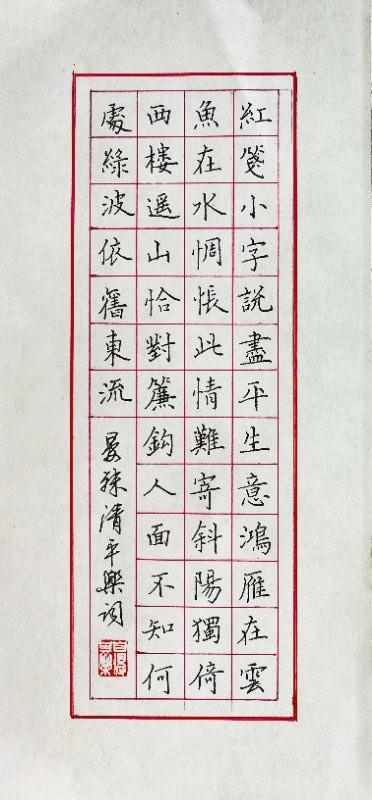 紅箋小字說盡平生意鴻雁在雲
魚在水惆悵此情難寄斜陽獨倚
西樓遥山恰對簾鈎人面不知何
處綠波依舊東流
晏殊清平樂词